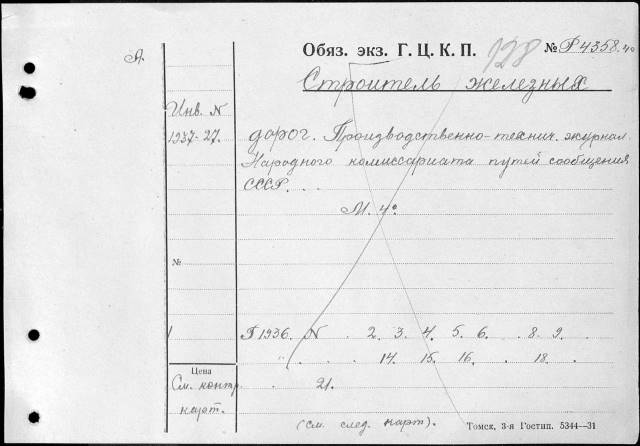 А.
Обяз. экз. Г. Ц. К. П. 128 № Р 4358. 40
Строитель железных
Инв. N
1937-27.
дорог. Производственно-технич. журнал
Народного комиссариата путей сообщения
СССР. . .
М. 4°
№
1
Г 1936. N . 2. 3. 4. 5. 6. . 8. 9.
" . . 14. 15. 16. . 18. .
Цена
См. контр. . . 21.
карт.
(см. след. карт).
Томск, 3-я Гостип. 5344—31